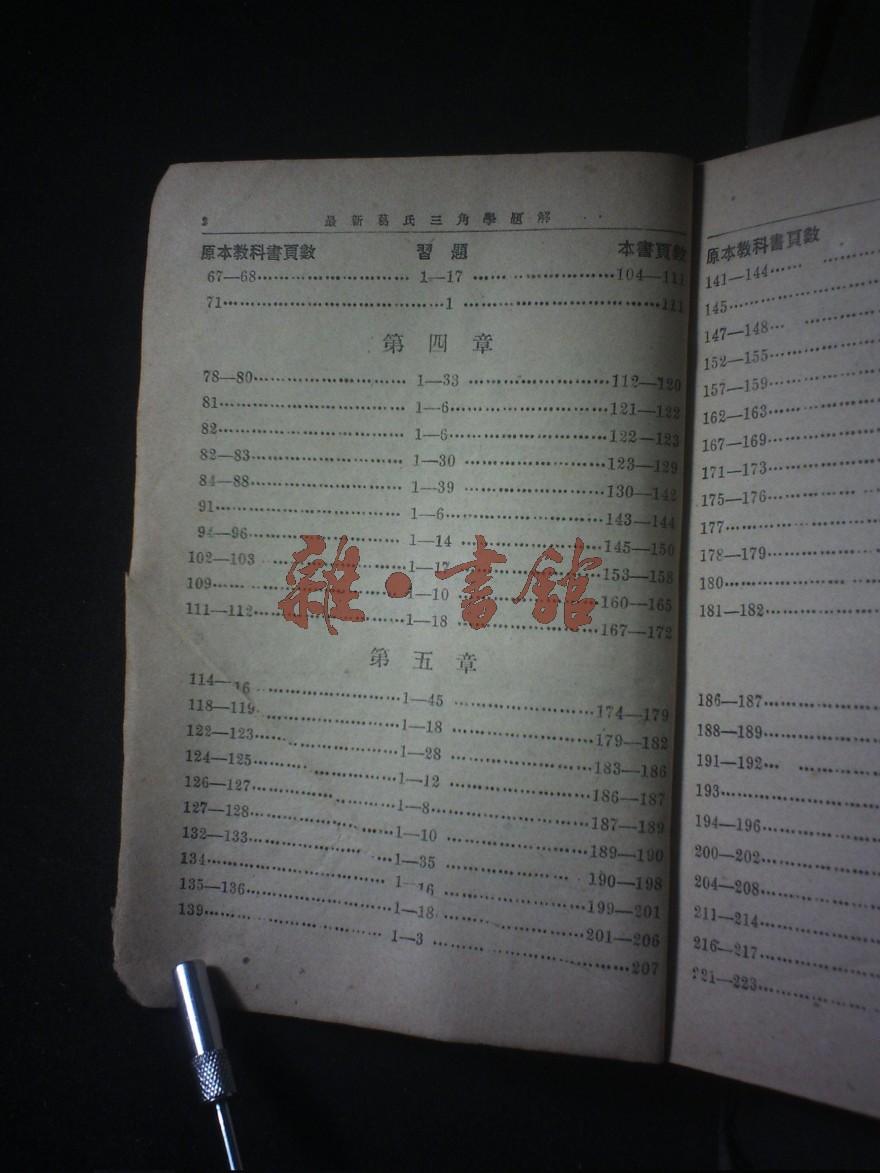 2 最新葛氏三角學題解
原本教科書頁數 習題 本書頁數
67—68 1—17 104—111
71 1 111
第四章
78—80 1—33 112—120
81 1—6 121—122
82 1—6 122—123
82—83 1—30 123—129
84—88 1—39 130—142
91 1—6 143—144
94—96 1—14 145—150
102—103 1—17 153—158
109 1—10 160—165
111—112 1—18 167—172
第五章
114—16 1—45 174—179
118—119 1—18 179—182
122—123 1—28 183—186
124—125 1—12 186—187
126—127 1—8 187—189
127—128 1—10 189—190
132—133 1—35 190—198
134 1—16 199—201
135—136 1—18 201—206
139 1—3 207
雜·書館
原本教科書頁數
141—144
145
147—148
152—155
157—159
162—163
167—169
171—173
175—176
177
178—179
180
181—182
186—187
188—189
191—192
193
194—196
200—202
204—208
211—214
216—217
221—223